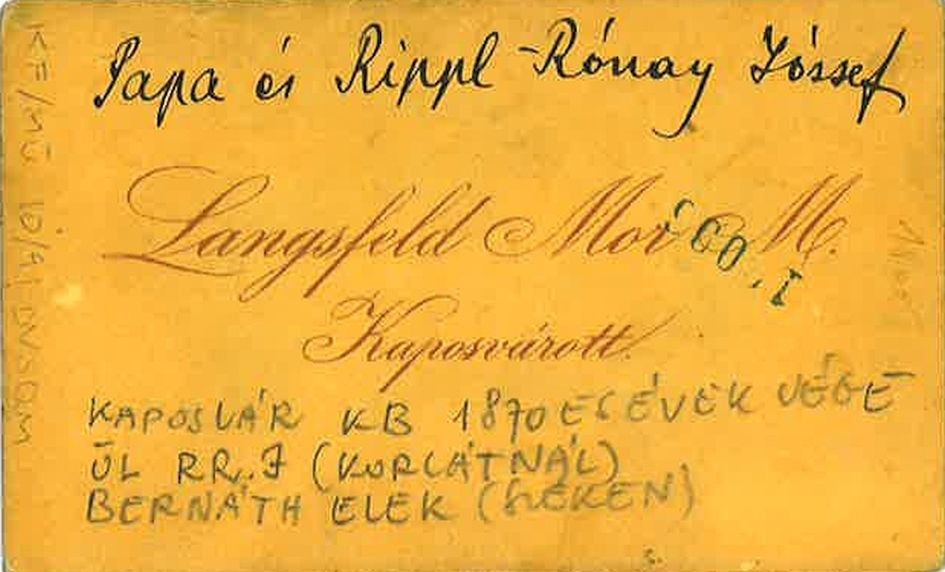 Papa és Rippl-Rónay József
Langsfeld Mór M.
Kaposvárott.
KAPOSVÁR KB 1870ES ÉVEK VÉGE
ÜL RR. J (KORLÁTNÁL)
BERNÁTH ELEK (SZÉKEN)